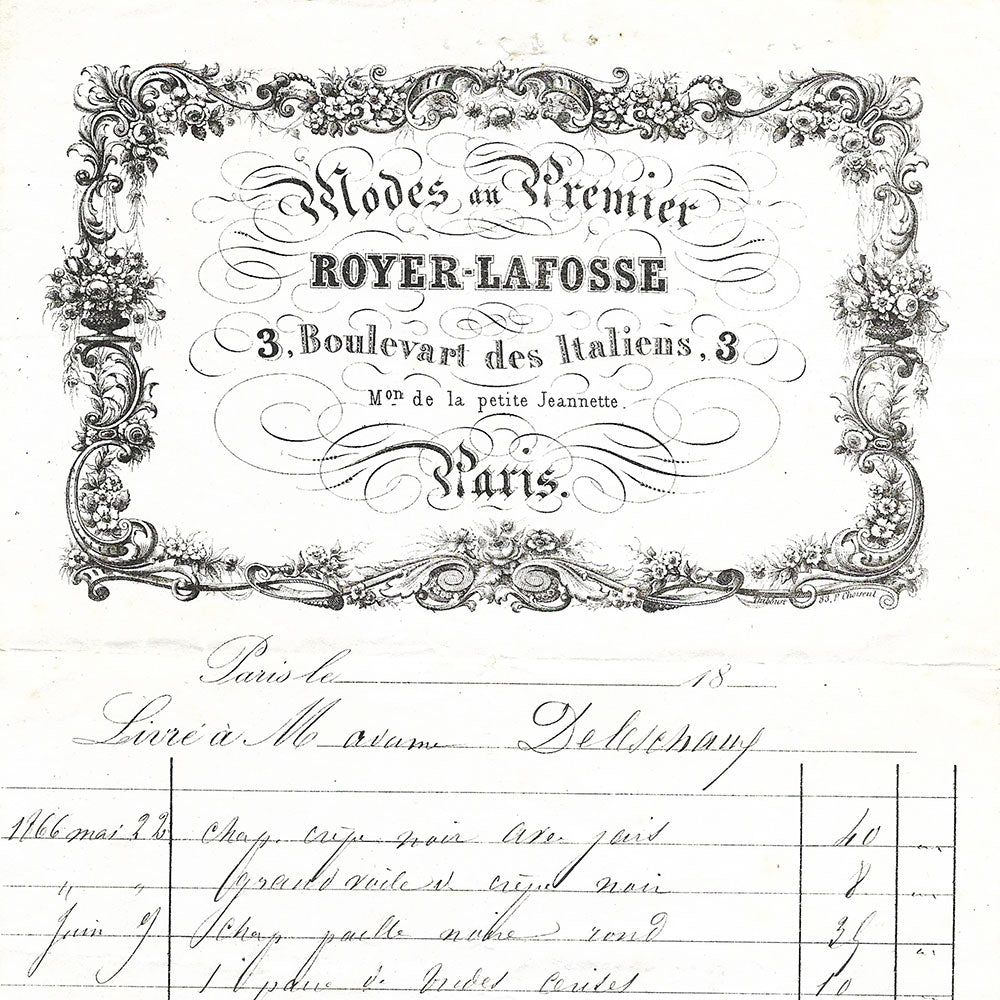 Modes au Premier
ROYER-LAFOSSE
3, Boulevart des Italiens, 3
Mon de la petite Jeannette.
Paris.
55, P. Choiseul
Paris le 18
Livré à Madame
1866 mai 22 chap. crêpe noir avec jais 40
" " grand voile de crêpe noir 8
Juin 9 chap paille noire rond 35
10